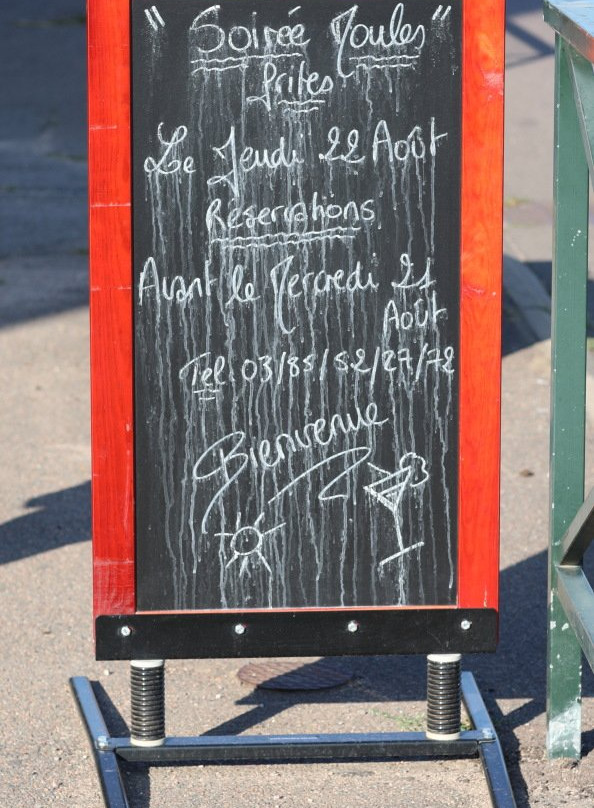 " Soirée Moules "
frites
Le Jeudi 22 Août
Réservations
Avant le Mercredi 21
Août
Tel 03/85/52/27/72
Bienvenue